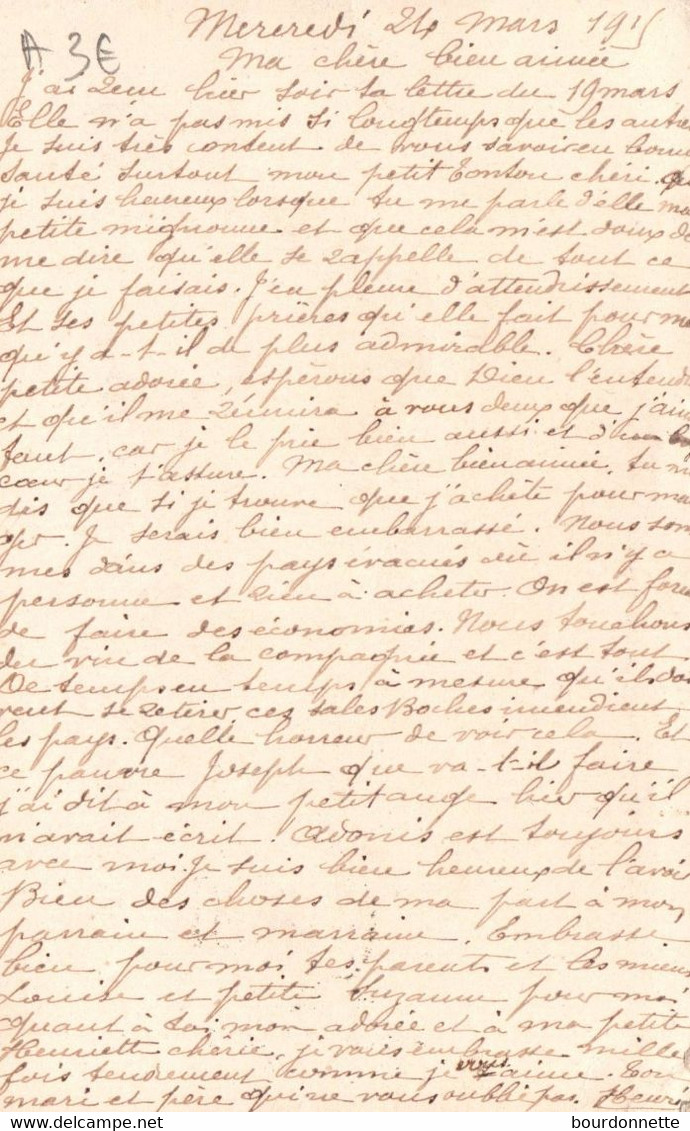 Mercredi 24 Mars 1915
A 3€
Ma chère bien aimée
J'ai recu hier soir ta lettre du 19 mars
Elle n'a pas mis si longtemps que les autres
Je suis très content de vous savoir en bonne
santé surtout mon petit tonton chéri. que
je suis heureux lorsque tu me parle d'elle ma
petite mignonne et que cela m'est doux de
me dire qu'elle se rappelle de tout ce
que je faisais. J'en pleure d'attendrissement
Et ses petites prières qu'elle fait pour moi
qu'y a-t-il de plus admirable. Chère
petite adorée, espérons que Dieu l'entende
et qu'il me réunira à vous deux que j'aime
tant, car je le prie bien aussi et d'un
coeur je t'assure. Ma chère bien aimée, tu me
dis que si je trouve que j'achète pour ma
Je serais bien embarrassé. Nous som
mes dans des pays évacués où il n'y a
personne et rien à acheter. On est forcé
de faire des économies. Nous touchons
du vin de la compagnie et c'est tout
De temps en temps à mesure qu'ils doi
vent se retirer ces sales Boches incendient
les pays. Quelle horreur de voir cela. Et
ce pauvre Joseph que va-t-il faire
j'ai dit à mon petit ange hier qu'il
m'avait écrit. Adonis est toujours
avec moi. Je suis bien heureux de l'avoir
Bien des choses de ma part à mon
parrain et marraine. Embrasse
bien pour moi tes parents et les miens
Louise et petite Suzanne pour moi
quant à toi mon adorée et à ma petite
Henriette chérie, je vous embrasse mille
fois tendrement comme je vous aime. Ton
mari et père qui ne vous oublie pas. Henri
bourdonnette